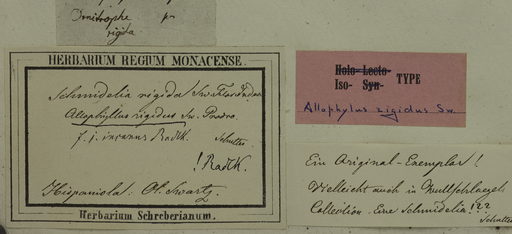 Ornitrophe
rigida
HERBARIUM REGIUM MONACENSE.
Schmidelia rigida Sw. Fl. Ind. occ.
Allophyllus rigidus Sw. Prodr.
f. 1. inermis Radlk.
! Radlk.
Hispaniola: Ol. Swartz.
Herbarium Schreberianum.
Holo- Lecto-
Iso- Syn- TYPE
Allophylus rigidus Sw.
Ein Original-Exemplar!
Vielleicht auch in
Collection. Eine Schmidelia!??